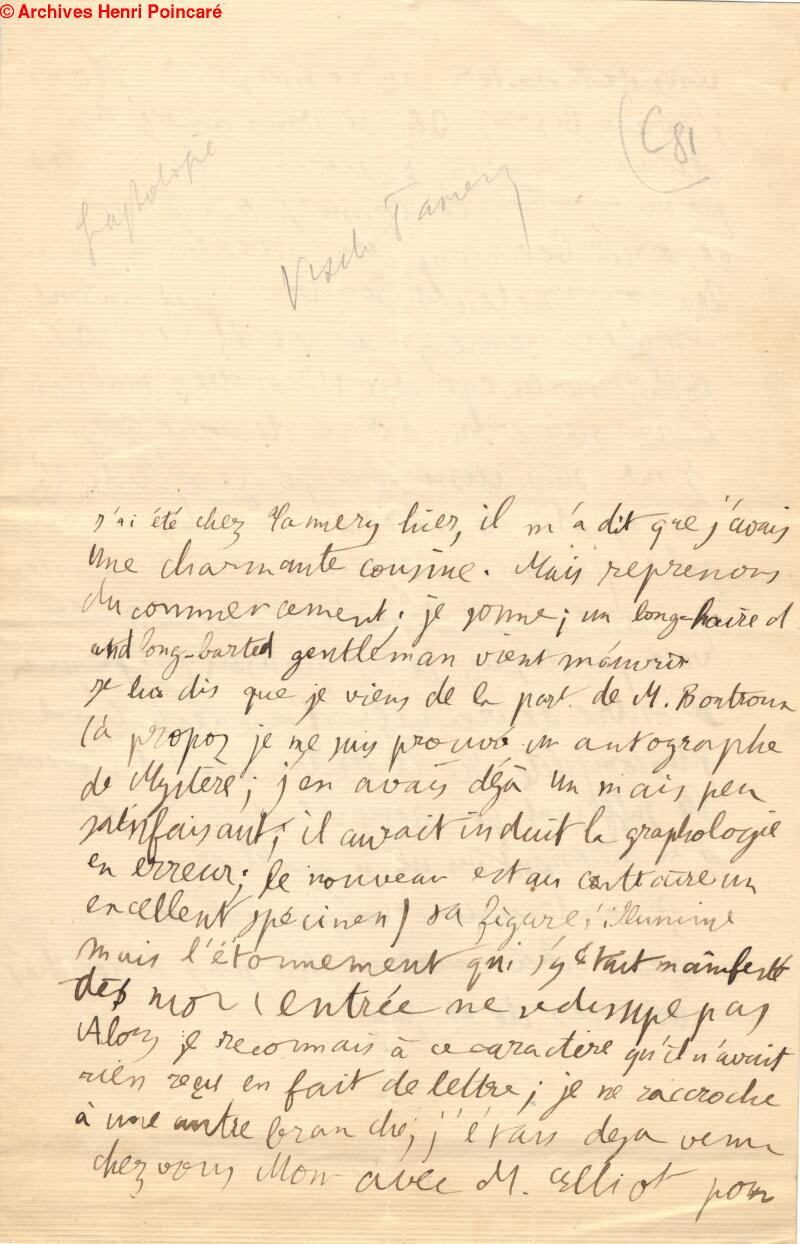 © Archives Henri Poincaré
(C81
graphologie
Visite Tannery
J'ai été chez Tannery hier, il m'a dit que j'avais
une charmante cousine. Mais reprenons
du commencement; je sonne; un long-haired
and long-barted gentleman vient m'ouvrir
Je lui dis que je viens de la part de M. Boutroux
(à propoz je me suis procuré un autographe
de Mystère; j'en avais déjà un mais peu
satisfaisant; il aurait induit la graphologie
en erreur; le nouveau est au contraire un
excellent spécimen) sa figure s'illumine
mais l'étonnement qui s'y était manifesté
dès mon entrée ne se dissippe pas
Alors je reconnais à ce caractère qu'il n'avait
rien reçu en fait de lettre; je me raccroche
à une autre branche, j'étais déjà venu
chez vous Mon avec M. Elliot pour